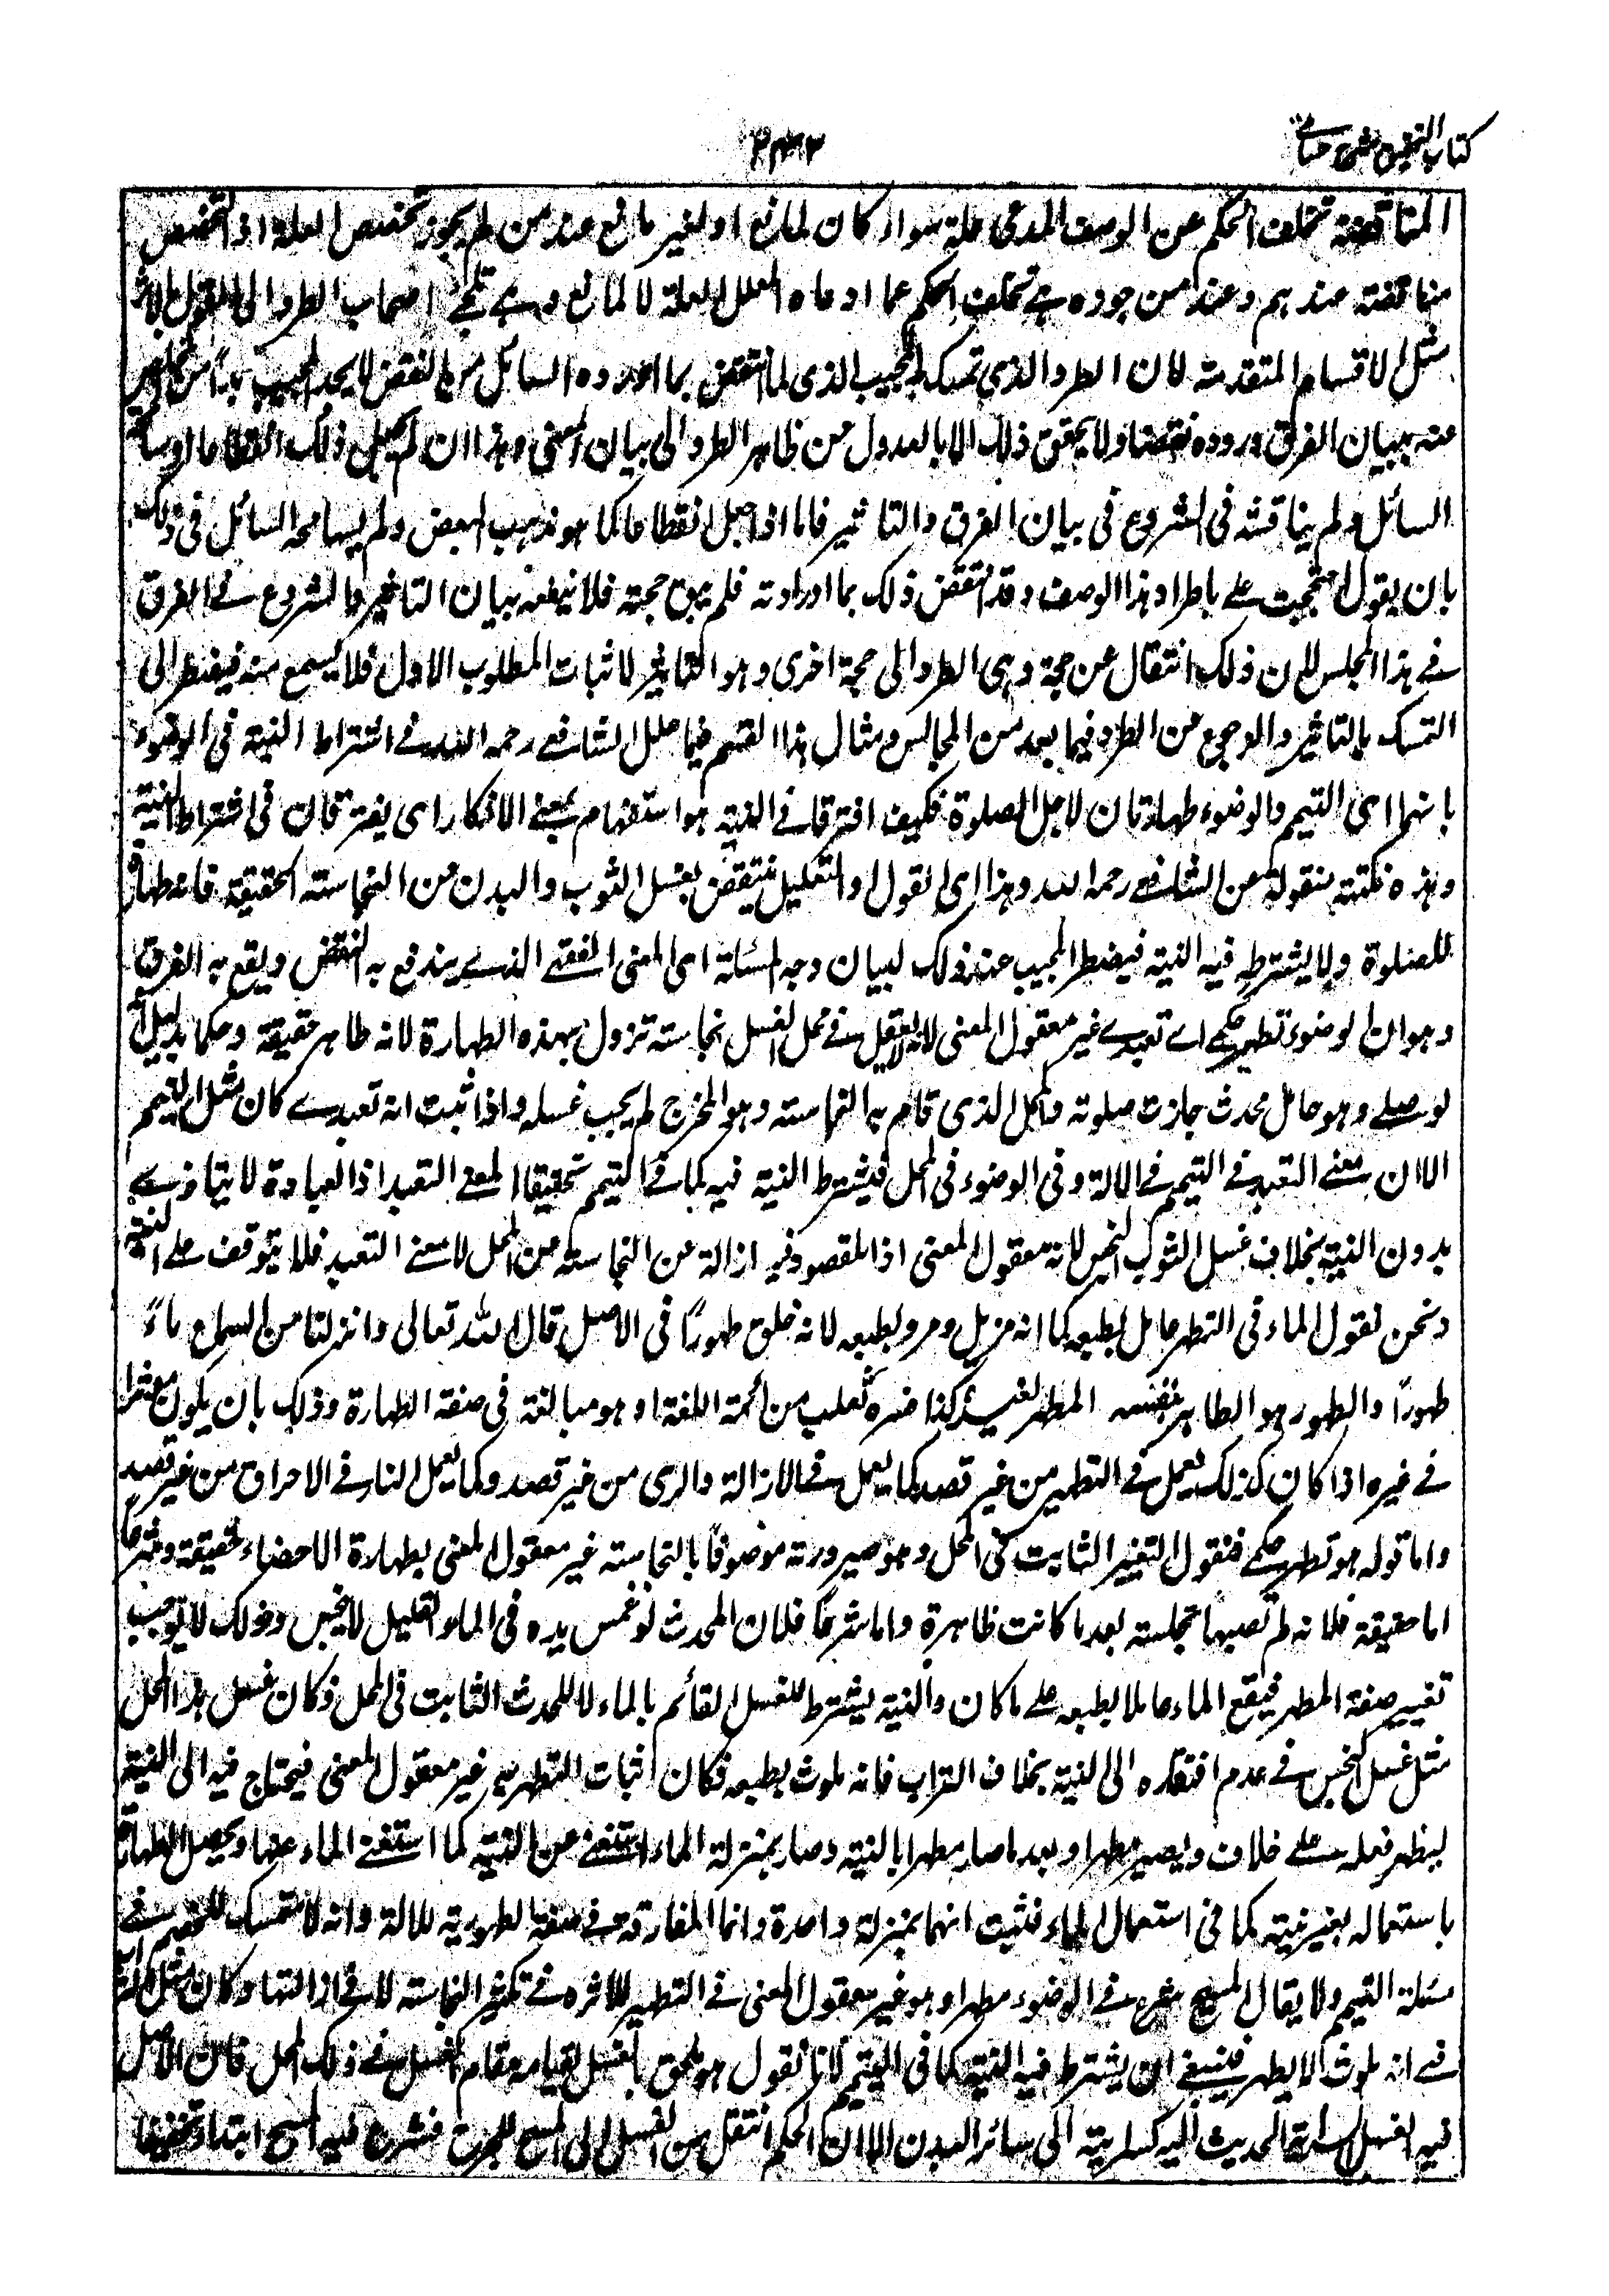 كتاب التحقيق شرح حسامي
المناقضة تخلف الحكم عن الوصف المدعى علة سواء كان لمانع او لغير مانع عند من لم يجوز تخصيص العلة اذ التخصيص
مناقضة عندهم وعند من جوزه هي تخلف الحكم عما ادعاه المعلل العلة لا لمانع وهي تلجئ اصحاب الطرد الى القول بالاثر
مثل الاقسام المتقدمة لان الطرد الذي تمسك المجيب الذى لما انتقض بما اورده السائل من النقض لا يجد المجيب بدا من
منه ببيان الفرق وروده نقضا ولا يتحقق ذلك الا بالعدول من ظاهر الطرد الى بيان المعنى وهذا ان لم يجعل ذلك انقطاعا او سامحه
السائل ولم يناقشه فى الشروع فى بيان الفرق والتاثير فاما اذا جعل انقطاعا كما هو مذهب البعض ولم يسامحه السائل فى ذلك
بان يقول احتججت على باطراد هذا الوصف وقد انتقض ذلك بما اوردته فلم يبق حجة فلا ينفعه بيان التاثير والشروع في الفرق
في هذا المجلس لان ذلك انتقال عن حجة وهى الطرد الى حجة اخرى وهو التاثير لاثبات المطلوب الاول فلا يسمع منه فيضطر الى
التمسك بالتاثير والرجوع عن الطرد فيما بعد من المجالس ومثال هذا القسم فيما علل الشافعي رحمه الله في اشتراط النية فى الوضوء
بانهما اى التيمم والوضوء طهارتان لاجل الصلوة فكيف افترقا في النية هو استفهام بمعنى الانكار اى يفترقان فى اشتراط النية
وهذه نكتة منقولة عن الشافعي رحمه الله وهذا اى القول او التعليل ينتقض بغسل الثوب والبدن عن النجاسة الحقيقة فانه طهارة
للصلوة ولا يشترط فيه النية فيضطر المجيب عند ذلك لبيان وجه المسئلة اى المعنى الفقهي الذي يندفع به النقض ويقع به الفرق
وهو ان الوضوء تطهير حكمي اي تعبدي غير معقول المعنى لانه لا يعقل في محل الغسل نجاسة تزول بهذه الطهارة لانه طاهر حقيقة وحكما بدليل انه
لو صلى وهو حامل محدث جازت صلوته والمحل الذى قام به النجاسة وهو المخرج لم يجب غسله واذا ثبت انه تعبدي كان مثل التيمم
الا ان معنى التعبد في التيمم في الالة وفى الوضوء فى المحل فيشترط النية فيه كما في التيمم تحقيقا لمعنى التعبد اذ العبادة لا يتادى
بدون النية بخلاف غسل الثوب النجس لانه معقول المعنى اذ المقصود فيه ازالة عن النجاسة عن المحل لا معنى التعبد فلا يتوقف على النية
ونحن نقول الماء فى التطهر عامل بطبعه كما انه مزيل ومرو بطبعه لانه خلق طهورًا فى الاصل قال الله تعالى وانزلنا من السماء ماءً
طهورًا والطهور هو الطاهر بنفسه المطهر لغيره كذا فسره ثعلب من ائمة اللغة او هو مبالغة فى صفة الطهارة وذلك بان يكون مؤثرا
في غيره اذا كان كذلك يعمل في التطهير من غير قصد كما يعمل في الازالة والرى من غير قصد وكما يعمل النار في الاحراق من غير قصد
واما قوله هو تطهير حكمي فنقول التغير الثابت فى المحل وهو صيرورته موصوفًا بالنجاسة غير معقول المعنى بطهارة الاعضاء حقيقة وشرعا
اما حقيقة فلانه لم تصبها نجاسة بعد ما كانت ظاهرة واما شرعًا فلان المحدث لو غمس يده فى الماء القليل لا ينجس وذلك لا يوجب
تغيير صفة المطهر فيقع الماء عاملا بطبعه على ما كان والنية يشترط للغسل القائم بالماء لا للحدث الثابت فى المحل فكان غسل هذا المحل
مثل غسل النجس في عدم افتقاره الى النية بخلاف التراب فانه ملوث بطبعه فكان اثبات التطهر به غير معقول المعنى فيحتاج فيه الى النية
ليظهر فعله على خلاف ويصير مطهرا وبعد ما صار مطهرا بالنية وصار بمنزلة الماء استغنى عن النية كما استغنى الماء عنها ويحصل الطهارة
باستعماله بغير نية كما فى استعمال الماء فثبت انهما بمنزلة واحدة وانما المفارقة في صفة الطهورية للالة وانه لا متمسك للخصم في
مسئلة التيمم ولا يقال المسح شرع في الوضوء مطهرا وهو غير معقول المعنى في التطهير لاثره في تكثير النجاسة لا في ازالتها وكان مثل التراب
في انه ملوث لا يطهر فينبغي ان يشترط فيه النية كما فى التيمم لانا نقول هو ملحق بالغسل لقيامه مقام الغسل في ذلك المحل فان الاصل
فيه الغسل لسراية الحدث اليه كسرايته الى سائر البدن الا ان الحكم انتقل من الغسل الى المسح للحرج فشرع فيه المسح ابتداء تخفيفا